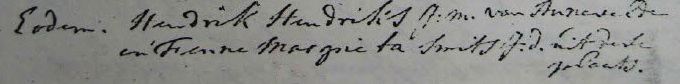 Eodem. Hendrik Hendriks J:m: van
en Marguie ta Smits J:d. uit dese
plaats.